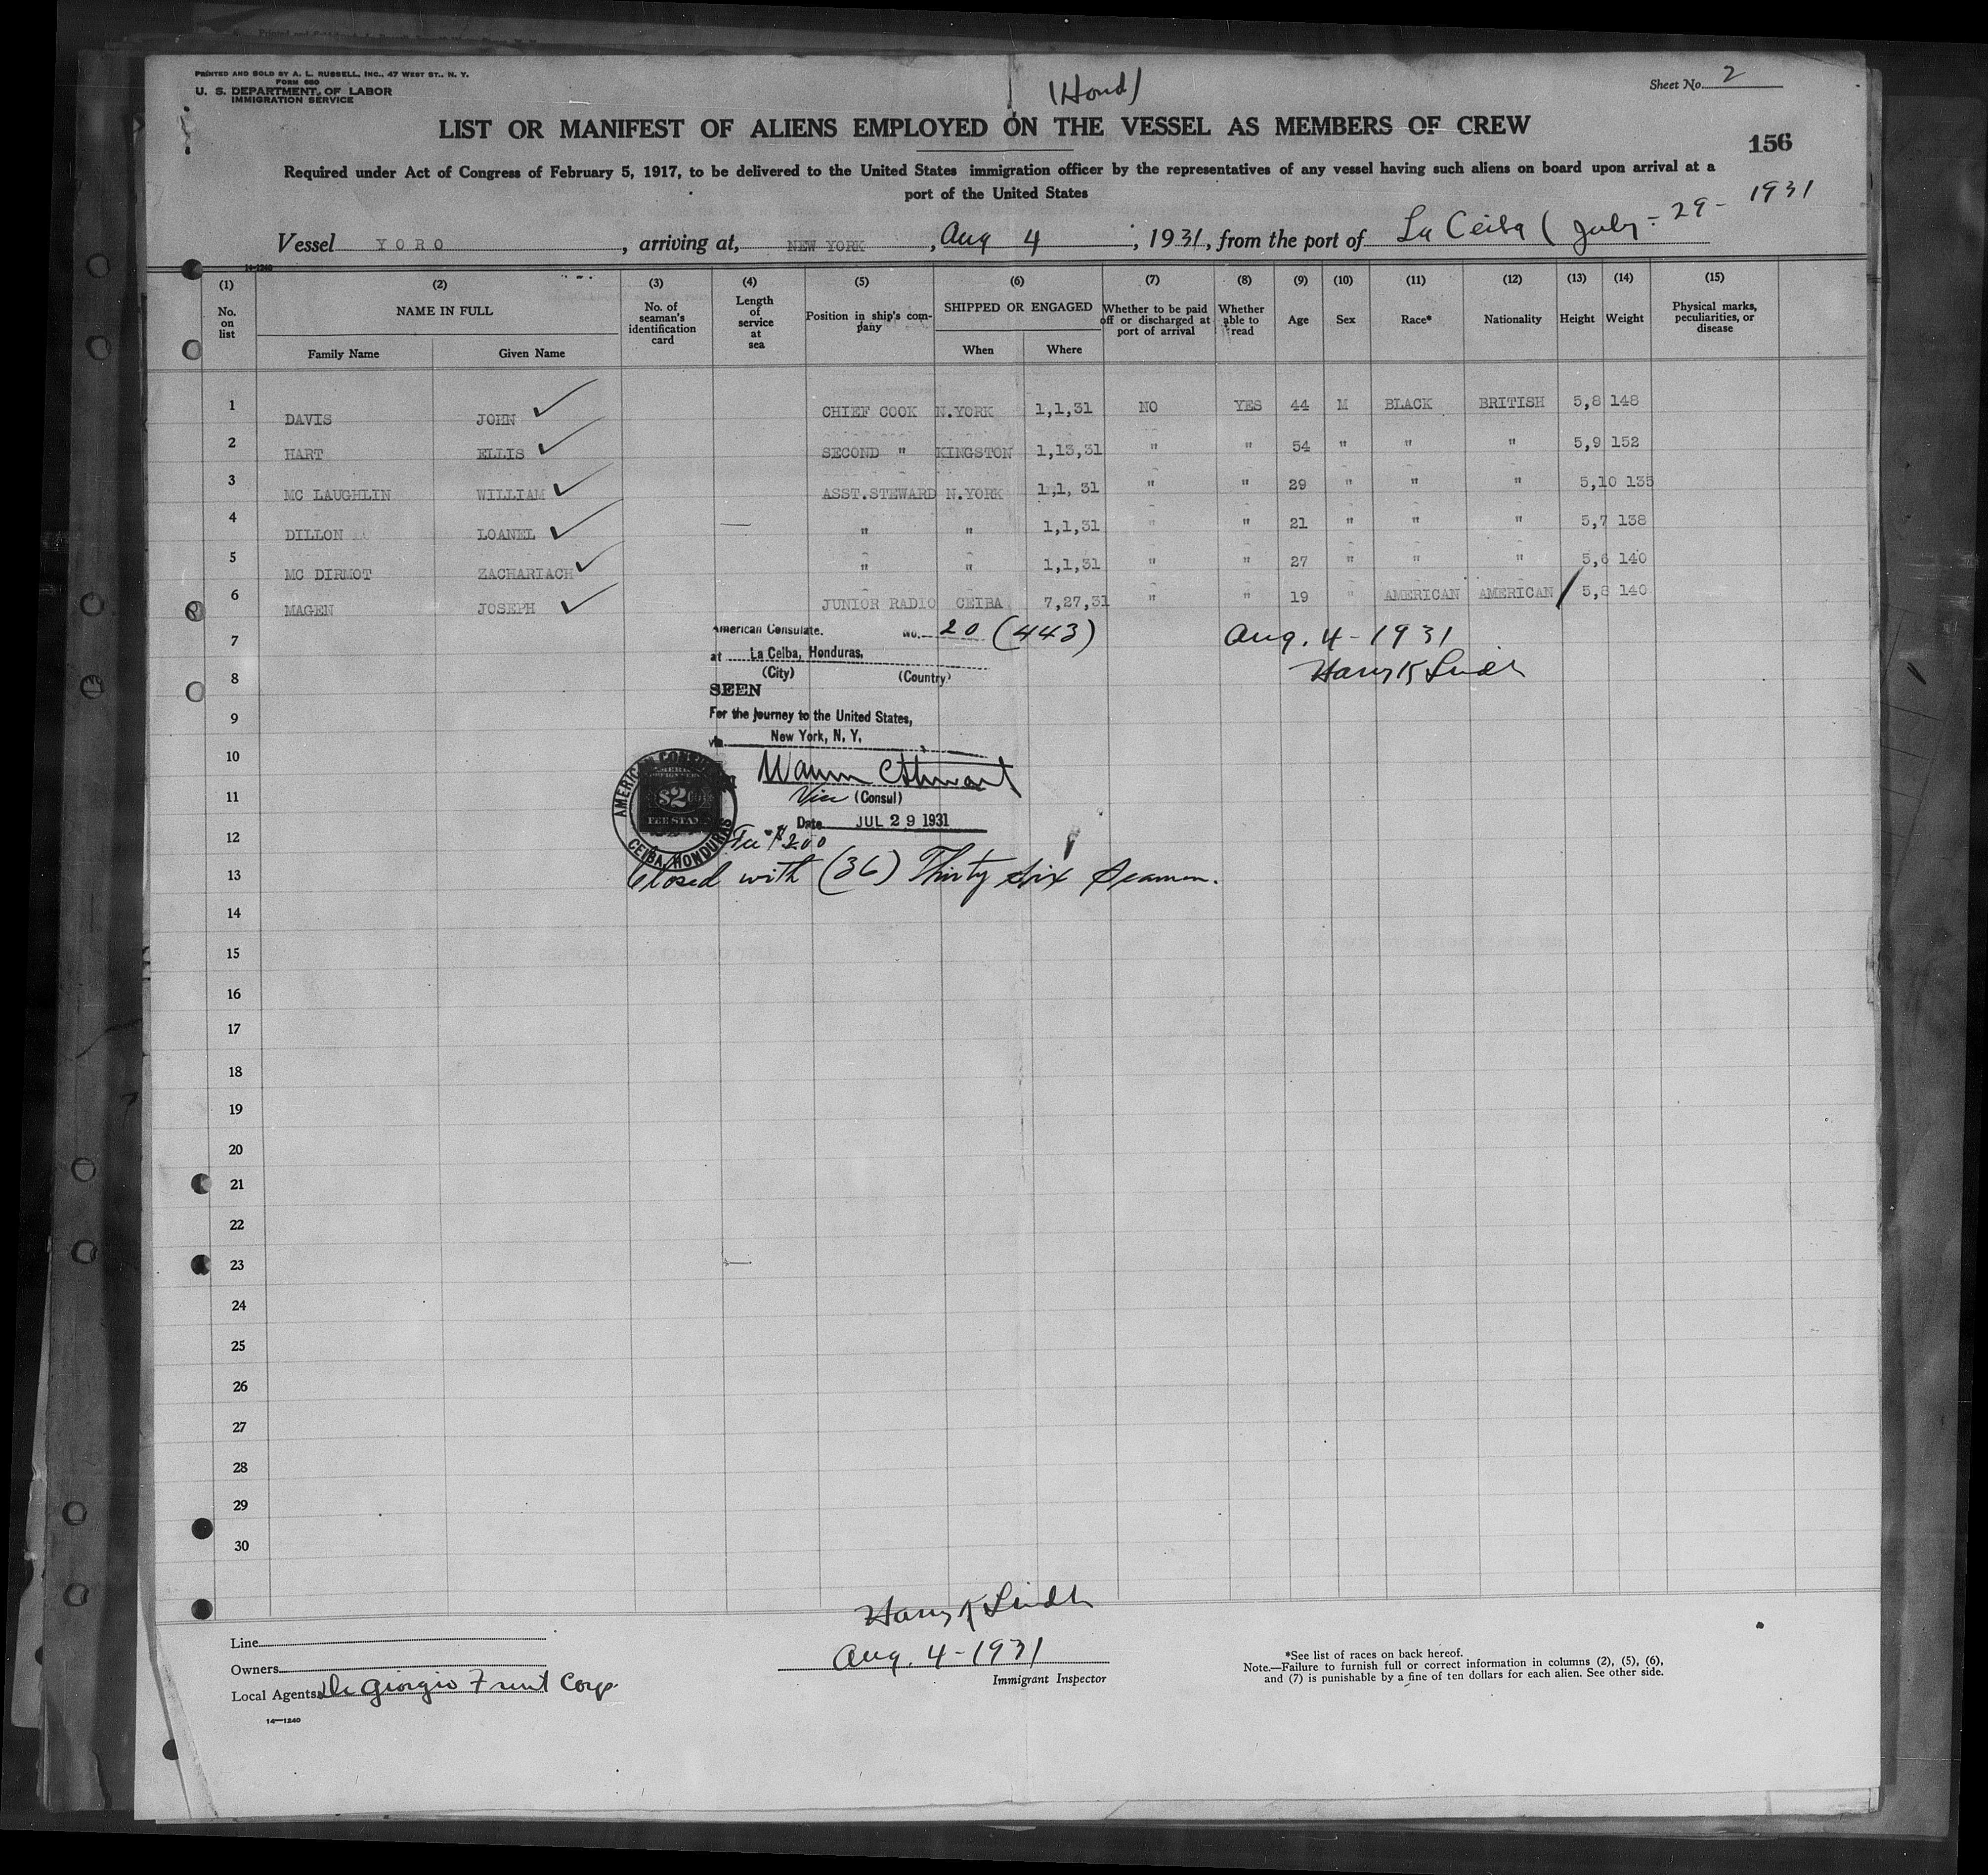 PRINTED AND SOLD BY A. L. RUSSELL, INC., 47 WEST ST., N. Y.
FORM 680
U. S. DEPARTMENT OF LABOR
IMMIGRATION SERVICE
(Hond)
Sheet No. 2
LIST OR MANIFEST OF ALIENS EMPLOYED ON THE VESSEL AS MEMBERS OF CREW
156
Required under Act of Congress of February 5, 1917, to be delivered to the United States immigration officer by the representatives of any vessel having such aliens on board upon arrival at a
port of the United States
Vessel YORO, arriving at, NEW YORK, Aug 4, 1931, from the port of La Ceiba ( July - 29 - 1931
14-1240
(1) (2) (3) (4) (5) (6) (7) (8) (9) (10) (11) (12) (13) (14) (15)
No. on list NAME IN FULL Family Name Given Name No. of seaman's identification card Length of service at sea Position in ship's company SHIPPED OR ENGAGED When Where Whether to be paid off or discharged at port of arrival Whether able to read Age Sex Race* Nationality Height Weight Physical marks, peculiarities, or disease
1 DAVIS JOHN ✓ CHIEF COOK N.YORK 1,1,31 NO YES 44 M BLACK BRITISH 5,8 148
2 HART ELLIS ✓ SECOND " KINGSTON 1,13,31 " " 54 " " " 5,9 152
3 MC LAUGHLIN WILLIAM ✓ ASST.STEWARD N.YORK 1,1, 31 " " 29 " " " 5,10 135
4 DILLON LOANEL ✓ " " 1,1,31 " " 21 " " " 5,7 138
5 MC DIRMOT ZACHARIACH ✓ " " 1,1,31 " " 27 " " " 5,6 140
6 MAGEN JOSEPH ✓ JUNIOR RADIO CEIBA 7,27,31 " " 19 " AMERICAN AMERICAN / 5,8 140
7
8
9
10
11
12
13
14
15
16
17
18
19
20
21
22
23
24
25
26
27
28
29
30
American Consulate. No. 20 (443)
at La Ceiba, Honduras.
(City) (Country)
SEEN
For the journey to the United States,
via New York, N. Y.
Vice (Consul)
Date JUL 29 1931
AMERICAN CONSULATE
$2
FEE STAMP
CEIBA, HONDURAS
Fee $2.00
Closed with (36) Thirty six Seamen.
Aug. 4 - 1931
Harry K Lindh
Harry K Lindh
Aug. 4 - 1931
Immigrant Inspector
Line
Owners
Local Agents Di Giorgio Fruit Corp.
14-1240
*See list of races on back hereof.
Note.—Failure to furnish full or correct information in columns (2), (5), (6),
and (7) is punishable by a fine of ten dollars for each alien. See other side.